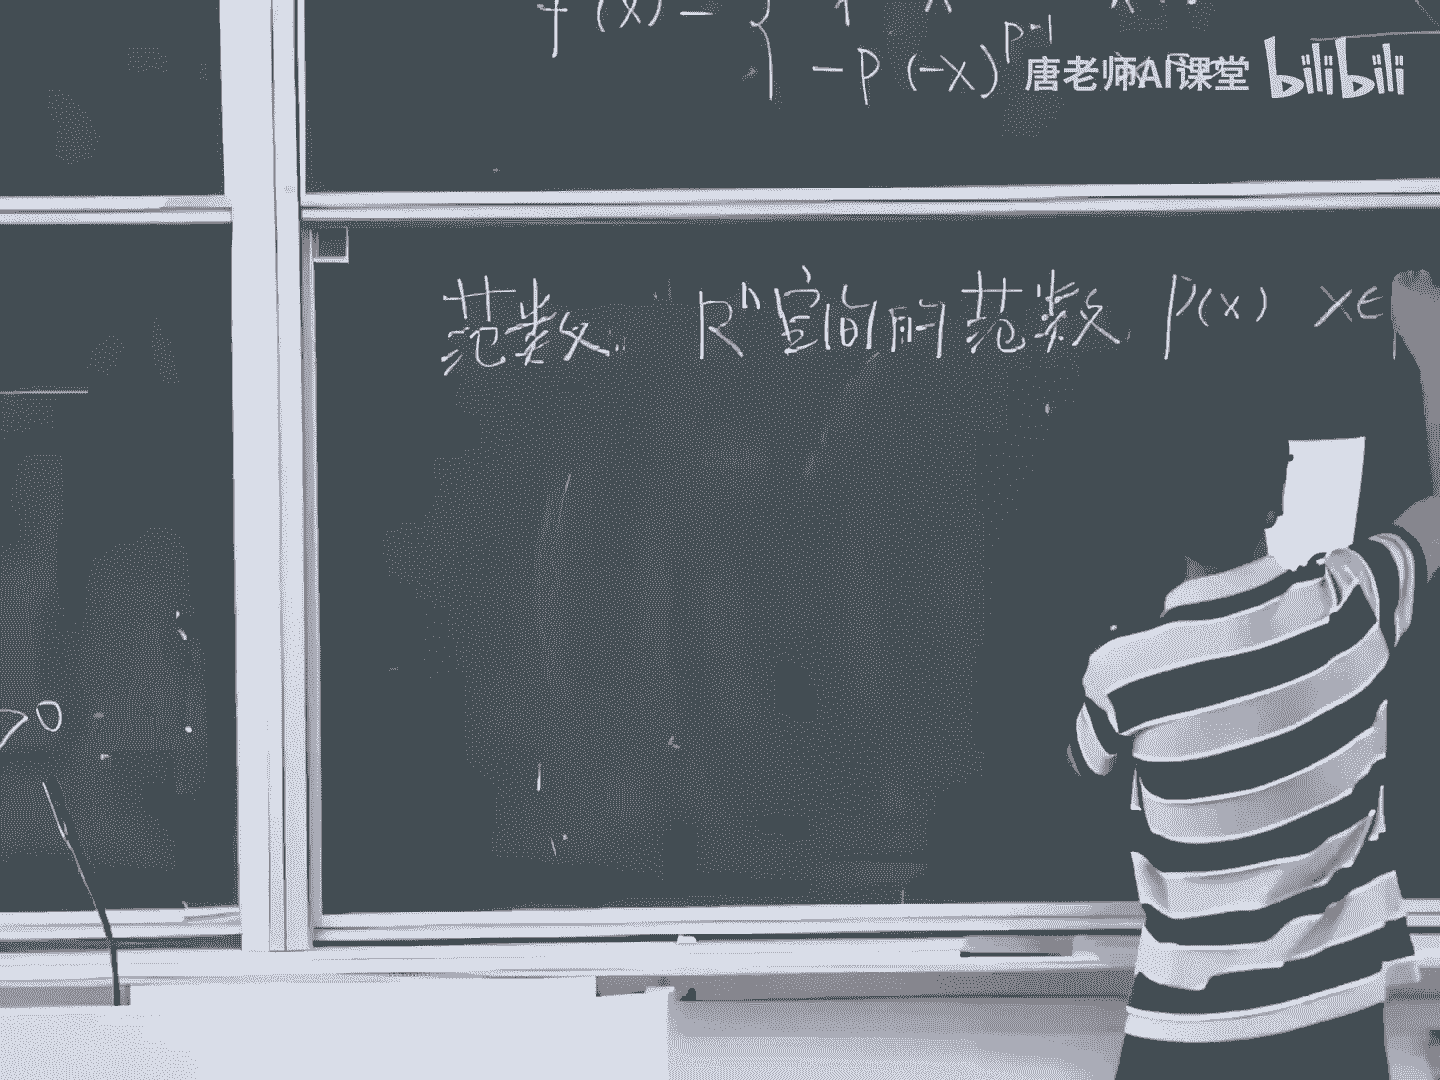 f'(x) = {
-p(-x)^{p-1}
唐老师AI课堂 bilibili
范数. R^n空间的范数. p(x) x∈
>0